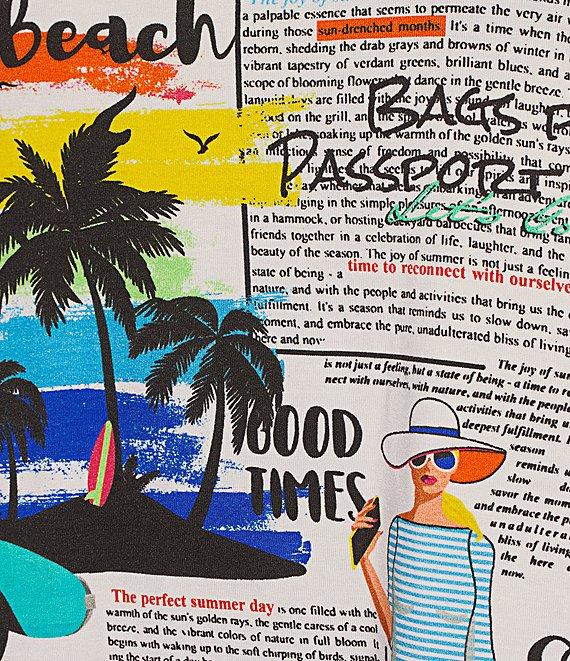 Beach
The joy of su
a palpable essence that seems to permeate the very air
during those sun-drenched months. It's a time when the
reborn, shedding the drab grays and browns of winter in
vibrant tapestry of verdant greens, brilliant blues, and a
scope of blooming flowers dance in the gentle breeze. T
days are filled with the joy laugh
on the grill, and the
soaking up the warmth of the golden sun's rays
sense of freedom and possibility that
BAGS
PASSPORT
Let's Go
in the simple pleasures afternoon
in a hammock, or hosting backyard barbecues that bring
friends together in a celebration of life, laughter, and the
beauty of the season. The joy of summer is not just a feelin
state of being - a time to reconnect with ourselve
nature, and with the people and activities that bring us the
fulfillment. It's a season that reminds us to slow down, sa
moment, and embrace the pure, unadulterated bliss of living
here and now
is not just a feeling, but a state of being - a time to re
nect with ourselves, with nature, and with the people
The joy of sum
activities that bring u
deepest fulfillment. I
season
reminds u
slow
savor the mom
and embrace the p
unadultera
bliss of living
the here
now.
GOOD
TIMES
The perfect summer day is one filled with the
warmth of the sun's golden rays, the gentle caress of a cool
breeze, and the vibrant colors of nature in full bloom. It
begins with waking up to the soft chirping of birds, signal-
ing the start of a day